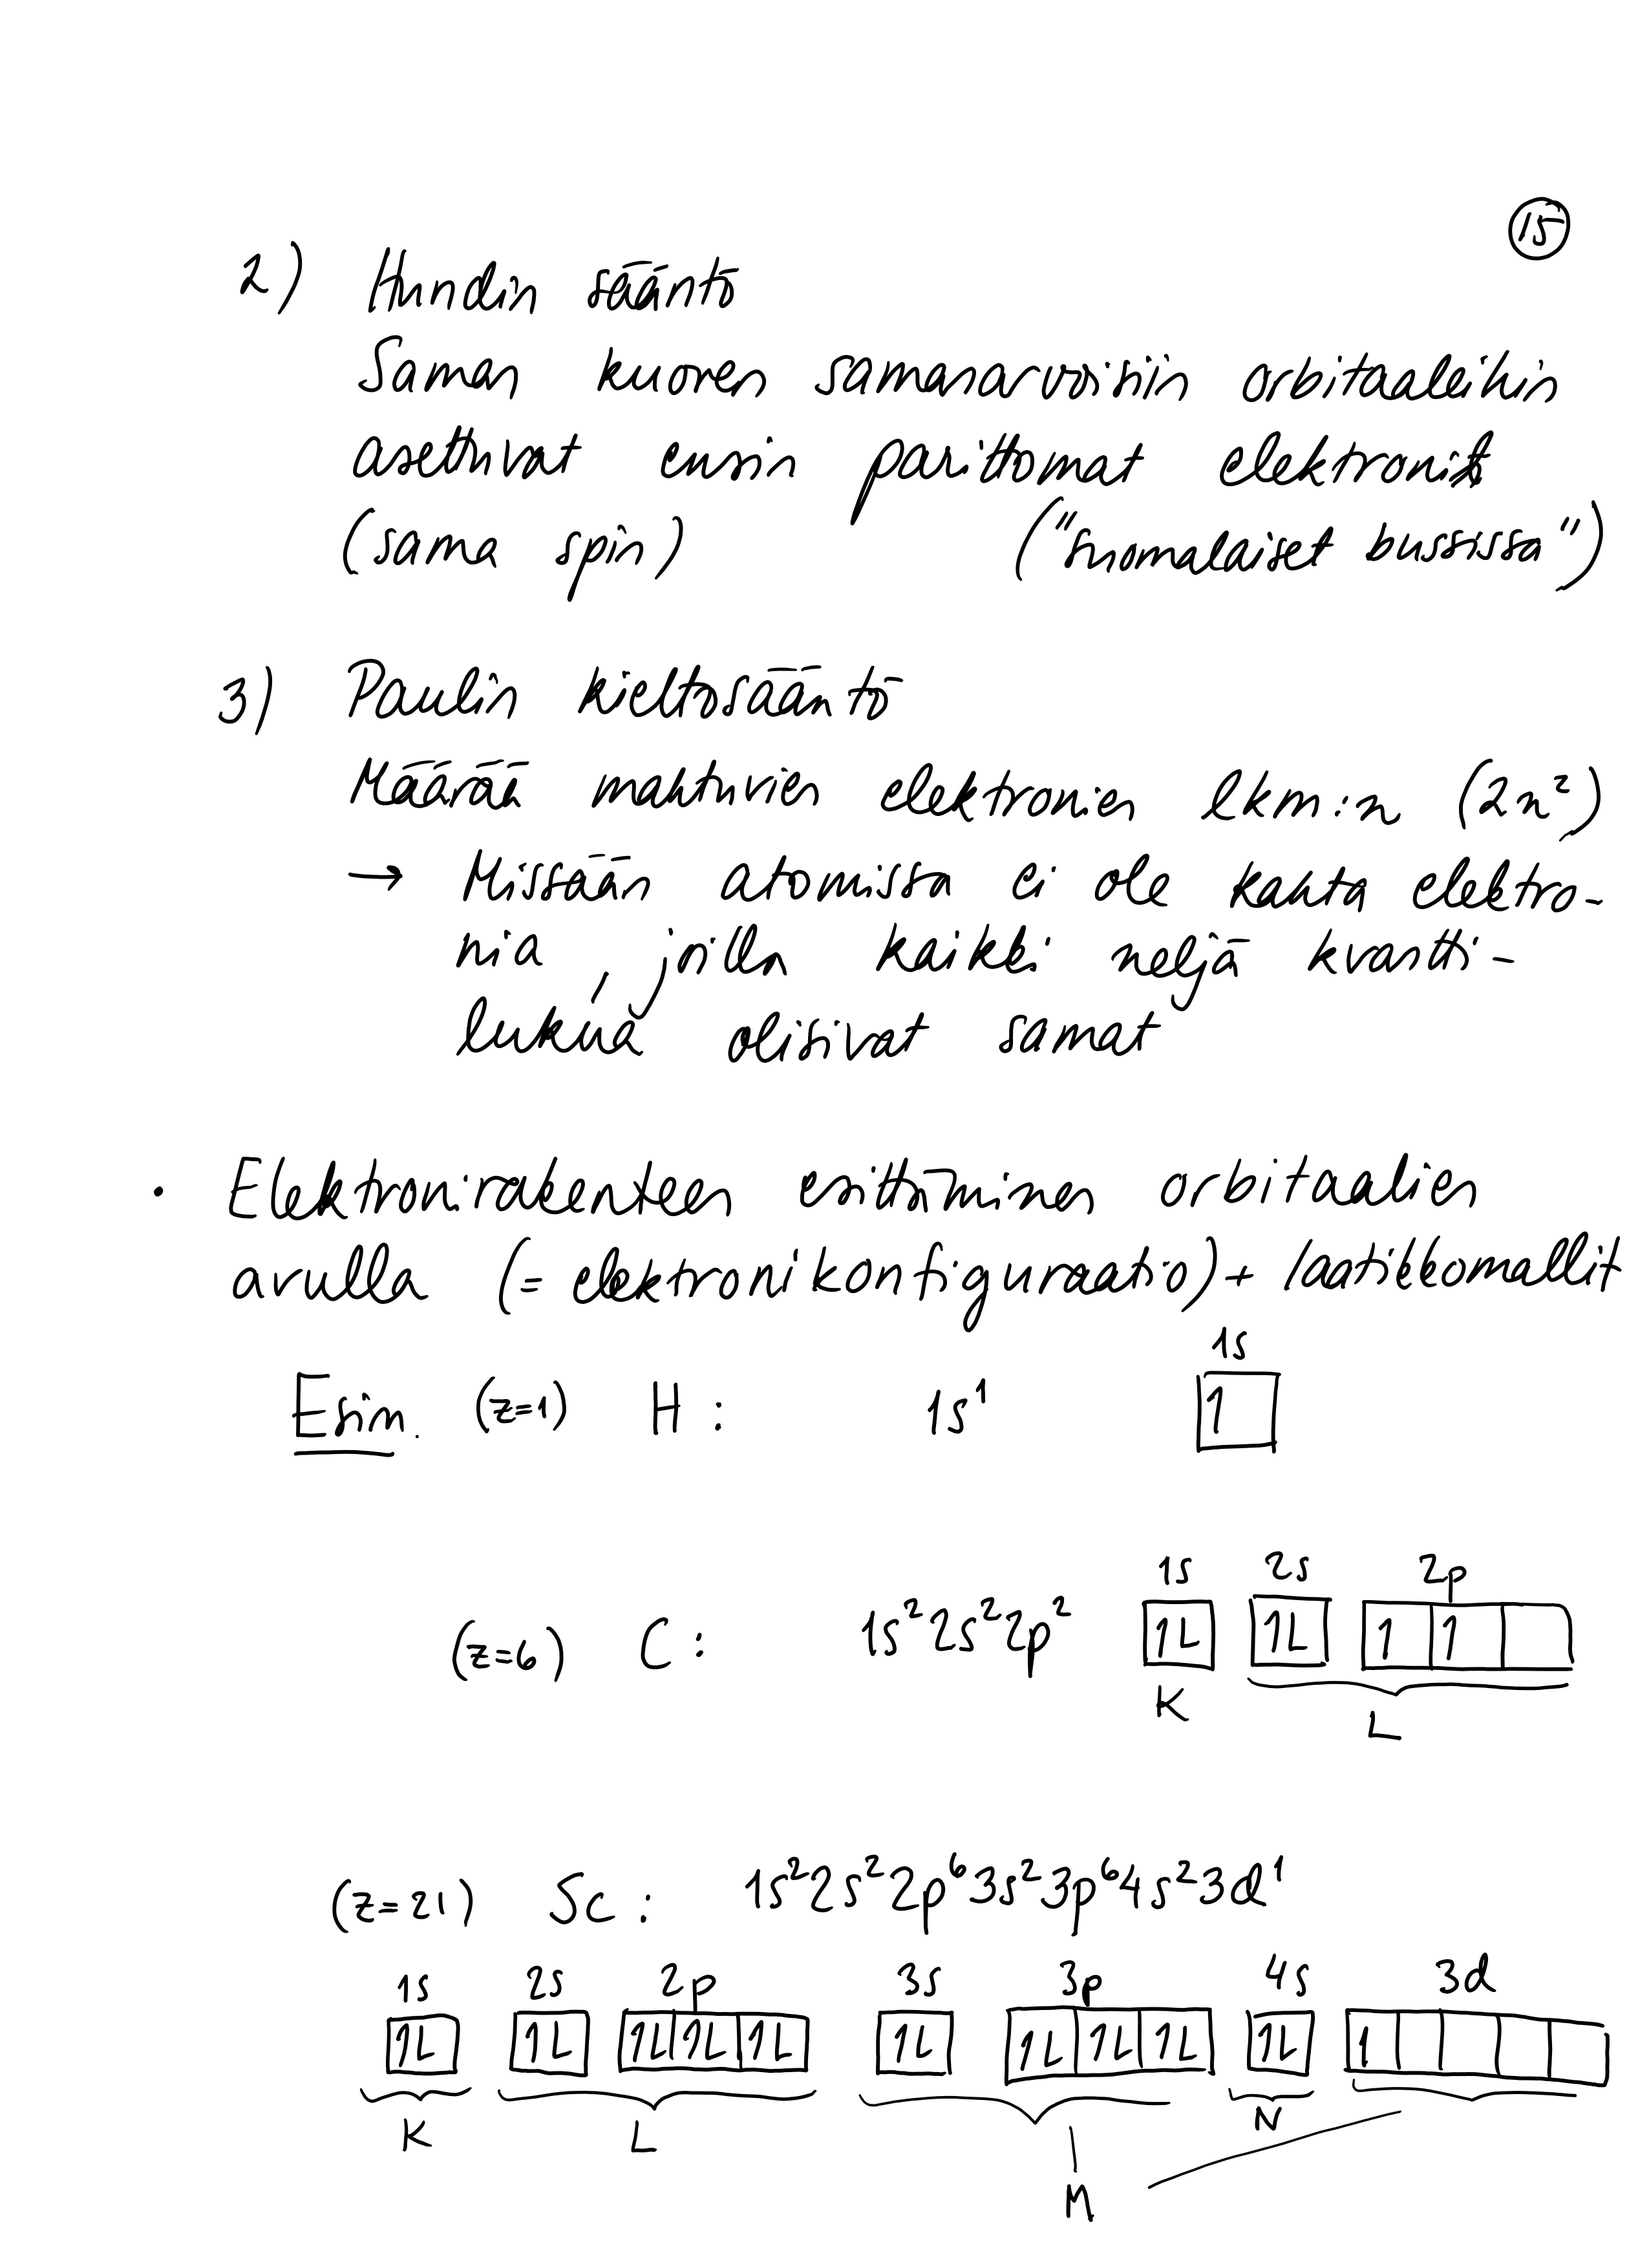 15
2) Hundin sääntö
Saman kuoren samanarvoisiin orbitaaleihin
asettuvat ensin parittomat elektronit
(sama spin) ("suomalaiset bussissa")
3) Paulin kieltosääntö
Määrää mahtuvien elektronien lkm:n (2n²)
→ Missään atomissa ei ole kahta elektro-
nia, joilla kaikki neljä kvantti-
lukua olisivat samat
· Elektronirakenteen esittäminen orbitaalien
avulla (= elektronikonfiguraatio) + laatikkomallit
1s
Esim. (z=1) H: 1s¹ 1
1s 2s 2p
(z=6) C: 1s²2s²2p² 1L 1L 1 1
K L
(z=21) Sc: 1s²2s²2p⁶3s²3p⁶4s²3d¹
1s 2s 2p 3s 3p 4s 3d
1L 1L 1L 1L 1L 1L 1L 1L 1L 1L 1
K L N
M